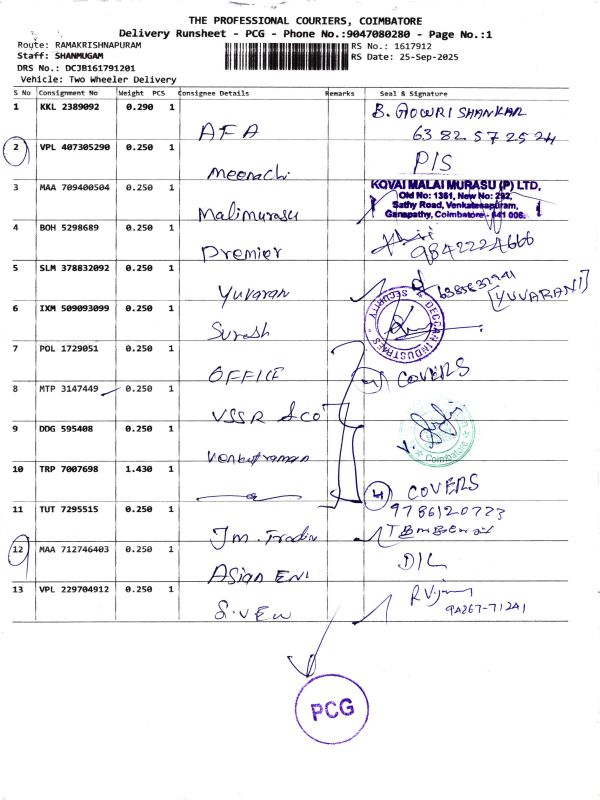 THE PROFESSIONAL COURIERS, COIMBATORE
Delivery Runsheet - PCG - Phone No.:9047080280 - Page No.:1
Route: RAMAKRISHNAPURAM
RS No.: 1617912
Staff: SHANMUGAM
RS Date: 25-Sep-2025
DRS No.: DCJB161791201
Vehicle: Two Wheeler Delivery
S No Consignment No Weight PCS Consignee Details Remarks Seal & Signature
1 KKL 2389092 0.290 1 AFA B. GOWRI SHANKAR
6382572524
2 VPL 407305290 0.250 1 Meenachi P/S
3 MAA 709400504 0.250 1 Malimurasu KOVAI MALAI MURASU (P) LTD,
Old No: 1361, New No: 292,
Sathy Road, Venkatesapuram,
Ganapathy, Coimbatore - 641 006.
4 BOH 5298689 0.250 1 Premier 9842224666
5 SLM 378832092 0.250 1 Yuvaran [YUVARANI]
6 IXM 509093099 0.250 1 Suresh DECCAN INDUSTRIES SECURITY
7 POL 1729051 0.250 1 OFFICE COVERS
8 MTP 3147449 0.250 1 VSSR &CO Coimbatore
9 DDG 595408 0.250 1 Venkatraman
10 TRP 7007698 1.430 1 4 COVERS
11 TUT 7295515 0.250 1 Jm. Tradin 9786120723
12 MAA 712746403 0.250 1 Asian ENI D/L
13 VPL 229704912 0.250 1 S.VEN 9A267-71241
PCG